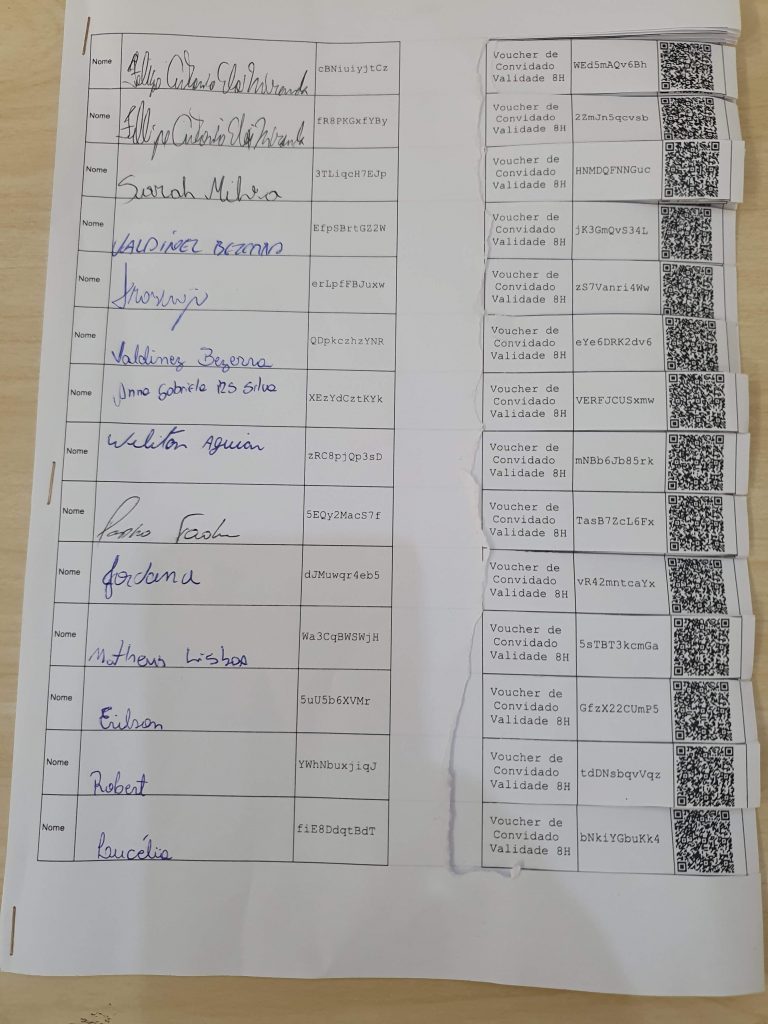 Nome Fellipe Antonio Eloi Miranda cBNiuiyjtCz
Voucher de
Convidado WEd5mAQv6Bh
Validade 8H
Nome Fellipe Antonio Eloi Miranda fR8PKGxfYBy
Voucher de
Convidado 2ZmJn5qcvsb
Validade 8H
Nome Sarah 3TLiqcH7EJp
Voucher de
Convidado HNMDQFNNGuc
Validade 8H
Nome VALDINEZ BEZERRA EfpSBrtGZ2W
Voucher de
Convidado jK3GmQvS34L
Validade 8H
Nome erLpfFBJuxw
Voucher de
Convidado zS7Vanri4Ww
Validade 8H
Nome Valdinez Bezerra QDpkczhzYNR
Voucher de
Convidado eYe6DRK2dv6
Validade 8H
Nome Anna Gabriela RS Silva XEzYdCztKYk
Voucher de
Convidado VERFJCUSxmw
Validade 8H
Nome Weliton Aguiar zRC8pjQp3sD
Voucher de
Convidado mNBb6Jb85rk
Validade 8H
Nome 5EQy2MacS7f
Voucher de
Convidado TasB7ZcL6Fx
Validade 8H
Nome Jordana dJMuwqr4eb5
Voucher de
Convidado vR42mntcaYx
Validade 8H
Nome Matheus Lisboa Wa3CqBWSWjH
Voucher de
Convidado 5sTBT3kcmGa
Validade 8H
Nome Erilson 5uU5b6XVMr
Voucher de
Convidado GfzX22CUmP5
Validade 8H
Nome Robert YWhNbuxjiqJ
Voucher de
Convidado tdDNsbqvVqz
Validade 8H
Nome Laucélia fiE8DdqtBdT
Voucher de
Convidado bNkiYGbuKk4
Validade 8H